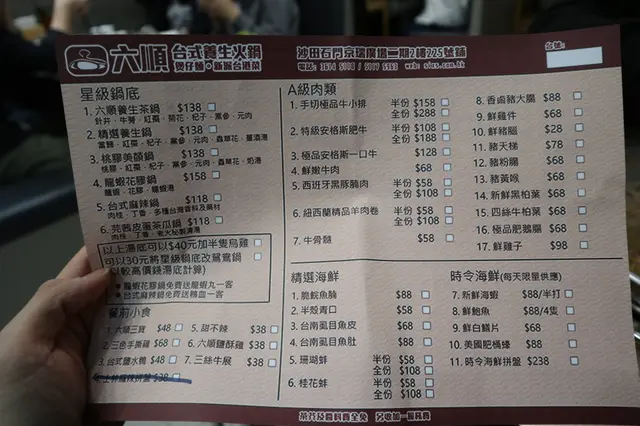 六順 台式養生火鍋
煲仔麵 新派台港菜
沙田石門京瑞廣場二期2樓225號鋪
台號:
星級鍋底
1. 六順養生茶鍋 $138
2. 精選養生鍋 $138
3. 桃膠美顏鍋 $158
4. 龍蝦花膠鍋 $158
龍蝦、花膠、龍蝦湯
5. 台式麻辣鍋 $118
肉桂、丁香、多種台灣香料及藥材
6. 芫茜皮蛋茶瓜鍋 $118
以上湯底可以$40元加半隻烏雞
可以30元將星級鍋底改鴛鴦鍋
(以較高價錢湯底計算)
龍蝦花膠鍋免費送龍蝦丸一客
台式麻辣鍋免費送鴨血一客
餐前小食
1. 六順三寶 $48
2. 三色手撕雞 $68
3. 台式鹽水鴨 $48
$38
5. 甜不辣 $38
6. 六順鹽酥雞 $38
7. 三絲牛展 $38
A級肉類
1. 手切極品牛小排 半份 $158
全份 $288
2. 特級安格斯肥牛 半份 $108
全份 $188
3. 極品安格斯一口牛 $128
4. 鮮嫩牛肉 $68
5. 西班牙黑豚腩肉 半份 $58
全份 $108
6. 紐西蘭精品羊肉卷 半份 $58
全份 $108
7. 牛骨髓 $58
8. 香滷豬大腸 $88
9. 鮮雞件 $68
10. 鮮豬腦 $28
11. 豬天梯 $78
12. 豬粉腸 $68
13. 豬黃喉 $68
14. 新鮮黑柏葉 $68
15. 四絲牛柏葉 $68
16. 極品肥鵝腸 $68
17. 鮮雞子 $98
精選海鮮
1. 脆脘魚腩 $88
2. 半殼青口 $58
3. 台南虱目魚皮 $68
4. 台南虱目魚肚 $88
5. 珊瑚蚌 半份 $58
全份 $108
6. 桂花蚌 半份 $58
全份 $108
時令海鮮(每天限量供應)
7. 新鮮海蝦 $88/半打
8. 鮮鮑魚 $88/4隻
9. 鮮白鱔片 $68
10. 美國肥桶蠔 $88
11. 時令海鮮拼盤 $238
茶芥及醬料費全免 另收加一服務費